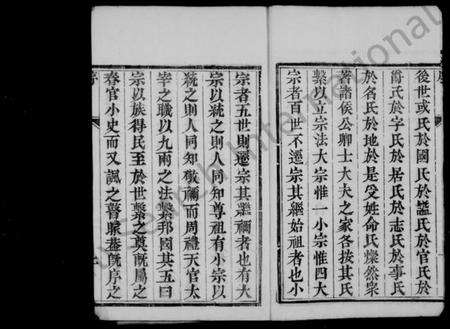 後世或氏於國氏於諡氏於官氏於
爵氏於字氏於居氏於志氏於事氏
於名氏於地於是受姓命氏燦然衆
著諸侯公卿士大夫之家各按其氏
繫以立宗法大宗惟一小宗惟四大
宗者百世不遷宗其繼始祖者也小
宗者五世則遷宗其繼禰者也有大
宗以統之則人同知尊祖有小宗以
統之則人同知敬禰而周禮天官太
宰之職以九兩之法繫邦國其五曰
宗以族得民至於世繫之奠旣屬之
春官小史而又諷之瞽矇蓋旣序之
序